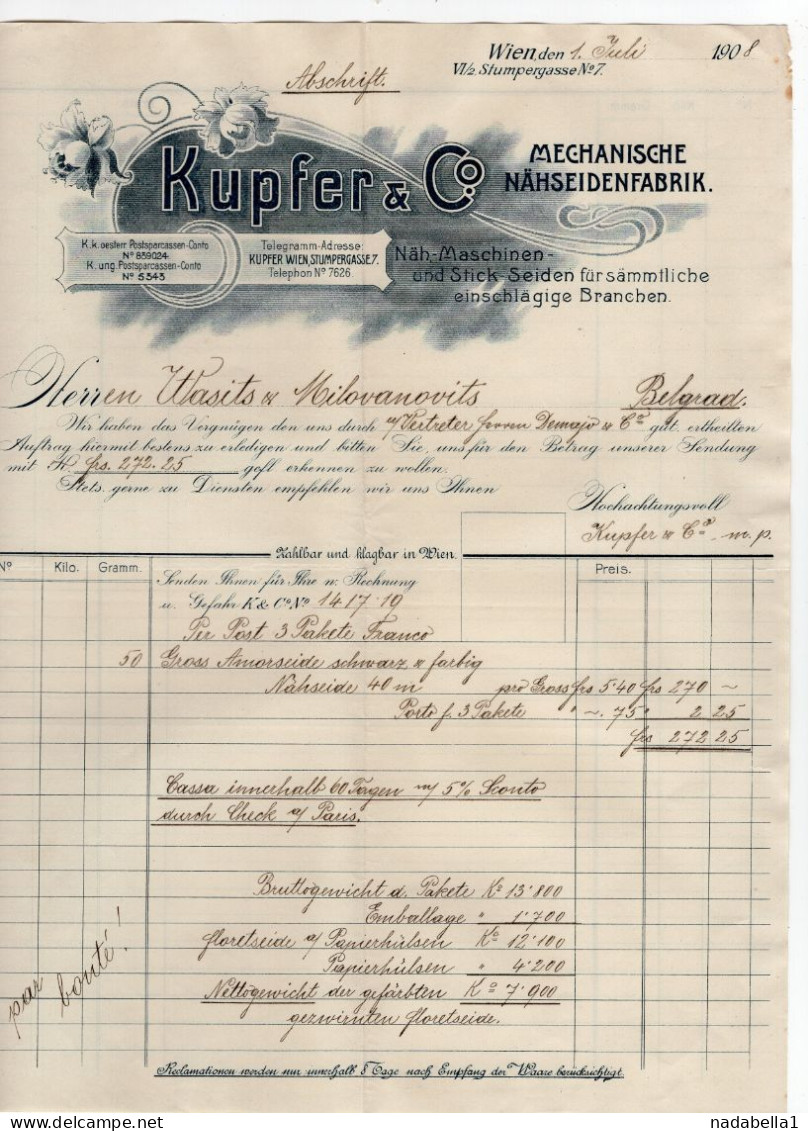 Wien, den 1. Juli 1908
VI/2. Stumpergasse No 7.
Abschrift.
Kupfer & Co.
MECHANISCHE
NÄHSEIDENFABRIK.
K.k. oesterr. Postsparcassen-Conto
No 859024.
K. ung. Postsparcassen-Conto
No 5343
Telegramm-Adresse:
KUPFER WIEN, STUMPERGASSE 7.
Telephon No 7626.
Näh-, Maschinen-
und Stick-Seiden für sämmtliche
einschlägige Branchen.
Herren Wasits & Milovanovits Belgrad.
Wir haben das Vergnügen den uns durch n/Vertreter Herren Demajo & Co gut. ertheilten
Auftrag hiermit bestens zu erledigen und bitten Sie, uns für den Betrag unserer Sendung
mit K frs. 272.25 gefl erkennen zu wollen.
Stets gerne zu Diensten empfehlen wir uns Ihnen
Hochachtungsvoll
Kupfer & Co m. p.
Zahlbar und klagbar in Wien.
No Kilo. Gramm. Preis.
Senden Ihnen für Ihre w. Rechnung
u. Gefahr K & Co No 1417-19
Per Post 3 Pakete Franco
50 Gross Amorseide schwarz & farbig
Nähseide 40 m pro Gross frs 5.40 frs 270 ~
Porto f. 3 Pakete " ~.75 " 2 25
frs 272 25
Cassa innerhalb 60 Tagen m/ 5% Sconto
durch Check a/ Paris.
Bruttogewicht d. Pakete Ko 13.800
Emballage " 1.700
Floretseide a/ Papierhülsen Ko 12.100
Papierhülsen " 4.200
Nettogewicht der gefärbten Ko 7.900
gezwirnten Floretseide.
par bonté!
Reclamationen werden nur innerhalb 8 Tage nach Empfang der Waare berücksichtigt.
nadabella1